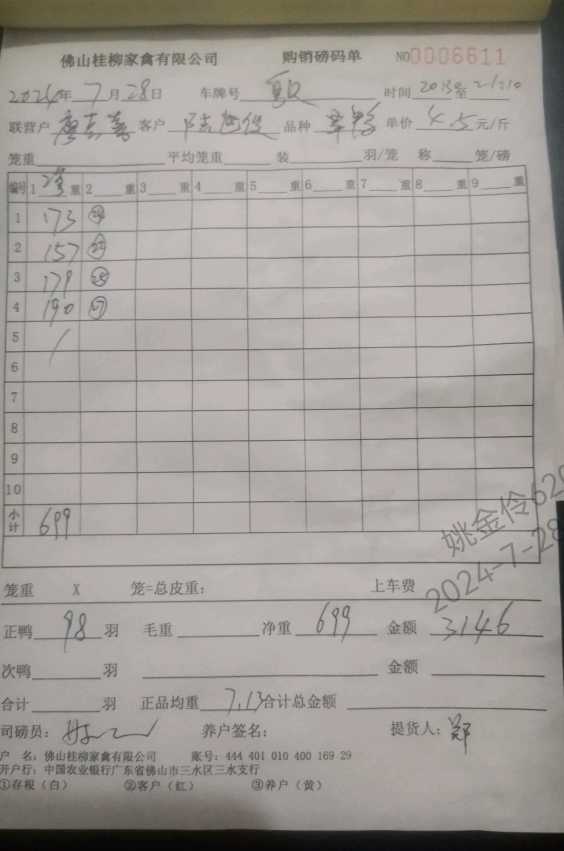 佛山桂柳家禽有限公司 购销磅码单 NO0006611
2024年7月28日 车牌号 时间 至
联营户 客户 品种 单价 4.5元/斤
笼重 平均笼重 装 羽/笼 称 笼/磅
编号 1 净重 2 重 3 重 4 重 5 重 6 重 7 重 8 重 9 重
1 173
2 157
3 179
4 190
5
6
7
8
9
10
小计 699
笼重 X 笼=总皮重： 上车费
正鸭 98 羽 毛重 净重 699 金额 3146
次鸭 羽 金额
合计 羽 正品均重 7.13 合计总金额
司磅员： 养户签名： 提货人：郑
户 名：佛山桂柳家禽有限公司 账号：444 401 010 400 169 29
开户行：中国农业银行广东省佛山市三水区三水支行
①存根（白） ②客户（红） ③养户（黄）
姚金伶
2024-7-28